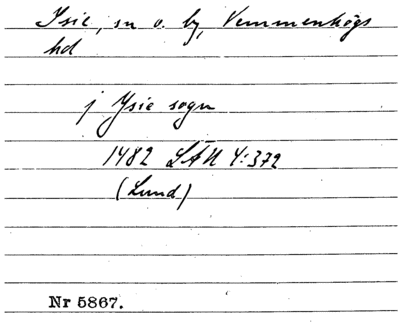 Ysie, sn o. by, Vemmenhögs
hd
j Ysie sogn
1482 LÄU 4:372
(Lund)
Nr 5867.